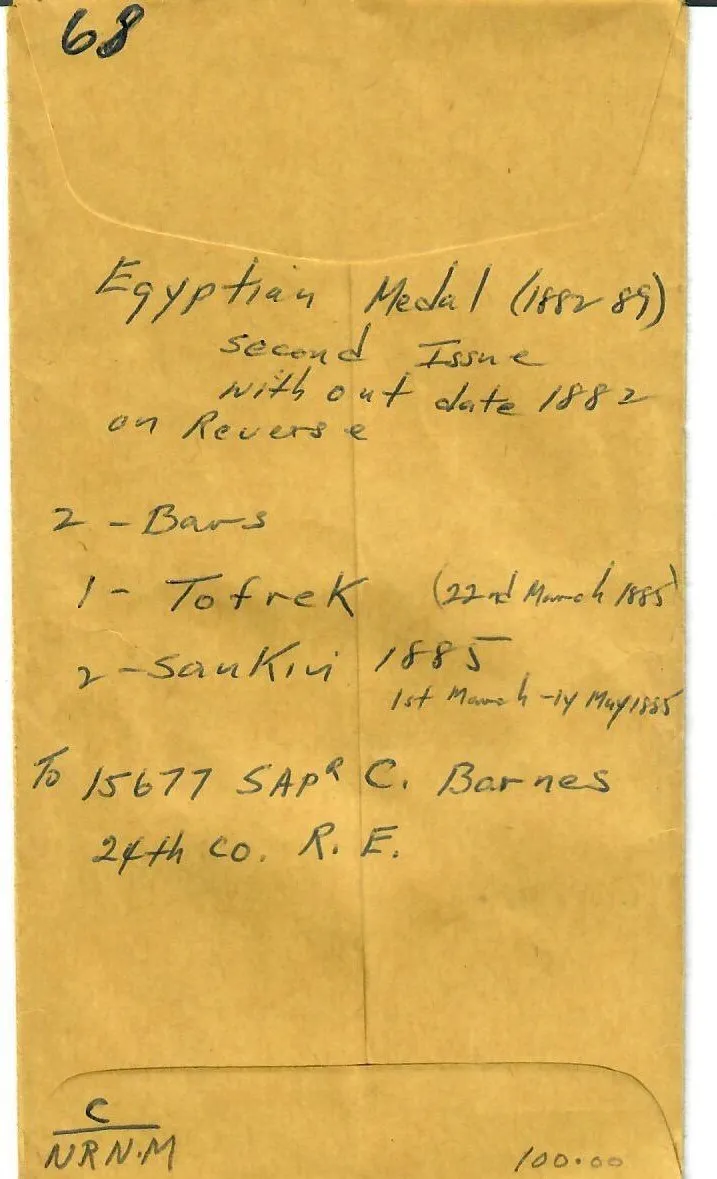 68
Egyptian Medal (1882 89)
second Issue
with out date 1882
on Reverse
2 - Bars
1 - Tofrek (22nd March 1885)
2 - Saukin 1885
1st March - 14 May 1885
To 15677 SAPR C. Barnes
24th Co. R. E.
C
NRN.M
100.00